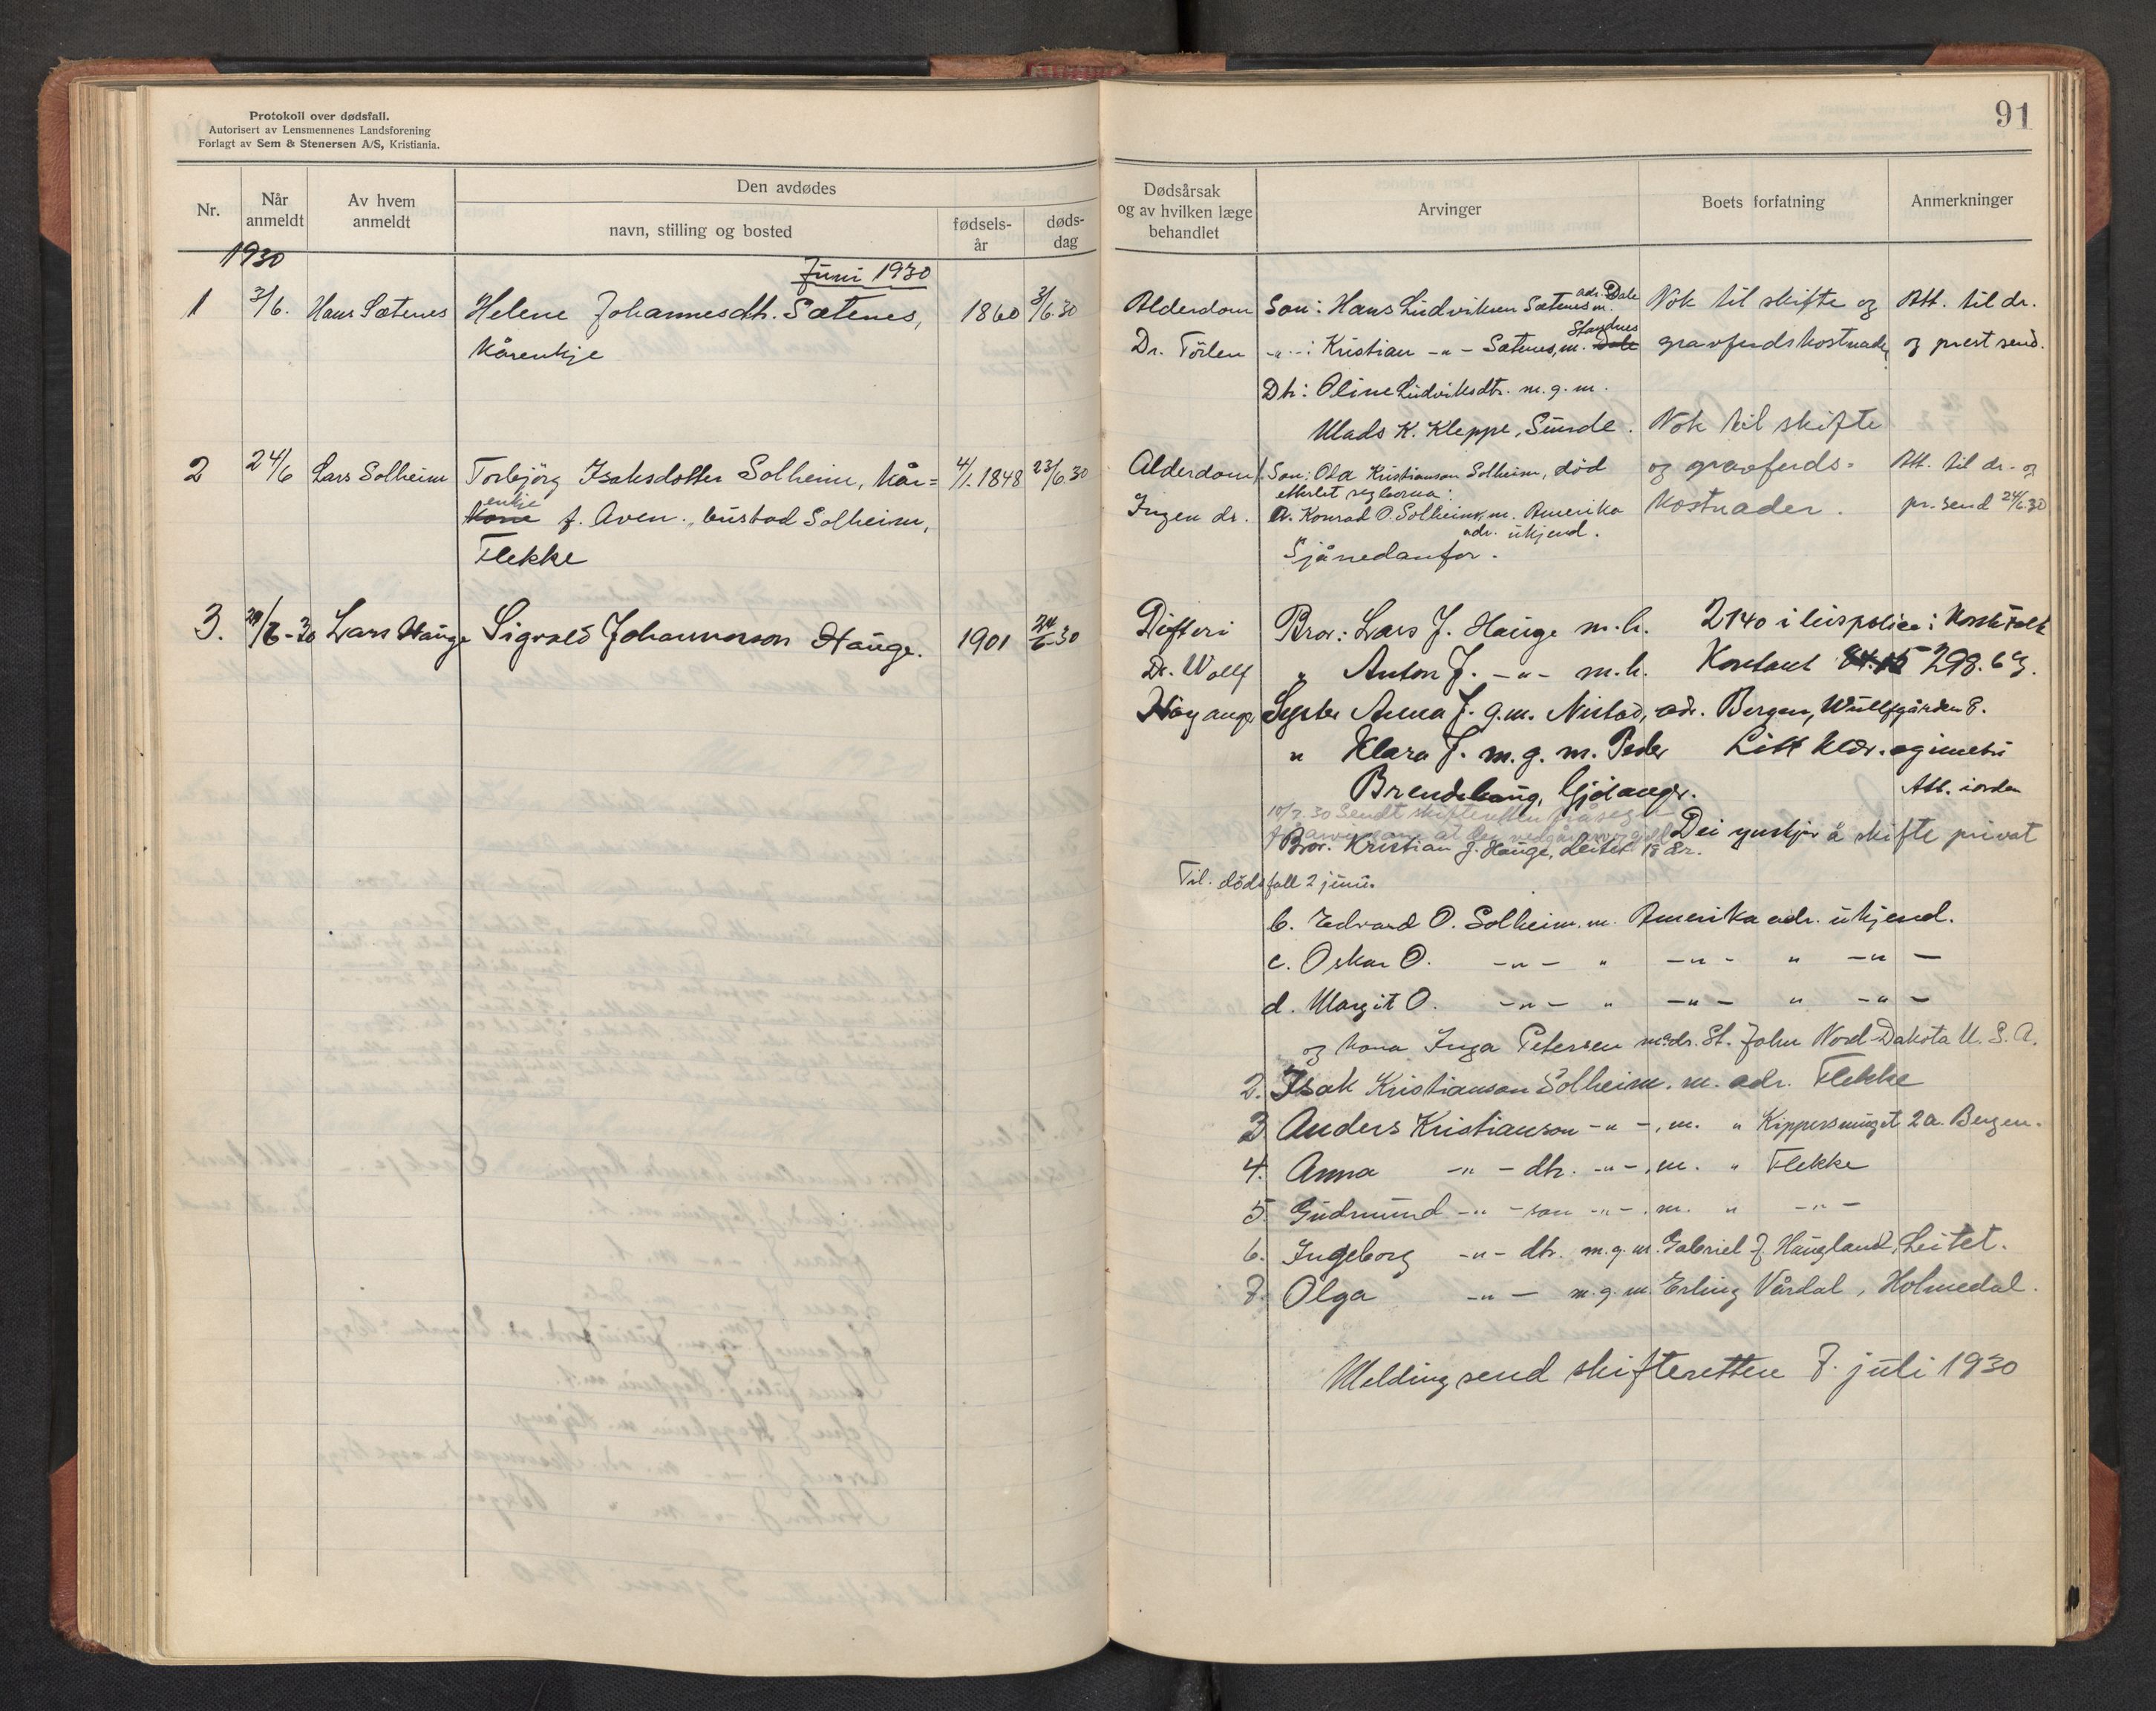 Protokoll over dødsfall.
Autorisert av Lensmennenes Landsforening
Forlagt av Sem & Stenersen A/S, Kristiania.
Nr.
Når anmeldt
Av hvem anmeldt
Den avdødes
navn, stilling og bosted
fødsels-år
døds-dag
1930
Juni 1930
1 3/6. Hans Sætenes Helene Johannesdtr. Sætenes, 1860 3/6.30
Kårenkje
2 24/6 Lars Solheim Torbjörg Isaksdotter Solheim, kår= 4/1.1848 23/6.30
enkje
Kone f. Aven., bustad Solheim,
Flekke
3. 28/6-30 Lars Hauge Sigvald Johannesson Hauge. 1901 24/6.30
91
Dødsårsak
og av hvilken læge
behandlet
Arvinger
Boets forfatning
Anmerkninger
adr. Dale
Alderdom Son: Hans Ludviksen Sætenes m. Nok til skifte og Att. til dr.
Standnes
Dr. Törlen -"-: Kristian -"- Sætenes, m. Dale gravferdskostnader og prest send.
Dtr: Oline Ludviksdtr. m.g.m.
Mads K. Kleppe, Sunde. Nok til skifte
Alderdom 1. Son: Ola Kristianson Solheim, död og gravferds- Att. til dr. og
etterlet seg borna:
Ingen dr. a. Konrad O. Solheim, m. Amerika kostnader. pr. send 24/6.30
adr. ukjend.
Sjå nedanfor.
Difteri Bror: Lars J. Hauge m.h. 2140 i livspolise i Norsk Folk
Dr. Wolff " Anton J. -"- m.h. Kontant 298.69.
Höyanger Syster Anna J. g.m. Nistad, adr. Bergen, Wullfgården 8.
" Klara J. m.g.m. Peder Litt klær. og
Brendehaug, Gjölanger. Att. iorden
10/7.30 Sendt skifteretten
Dei ynskjer å skifte privat
Bror. Kristian J. Hauge, Leitet 18 år.
Til. dödsfall 2 juni.
b. Edvard O. Solheim. m. Amerika adr. ukjend.
c. Oskar O. -"- " -"- " -"-
d. Margit O. -"- " -"- " -"-
og kona Inga Petersen m. adr. St. John Nord-Dakota U.S.A.
2. Isak Kristianson Solheim. m. adr. Flekke
3 Anders Kristianson -"-, m. " Kippersmuget 2a. Bergen.
4. Anna -"- dtr. -"-, m. " Flekke
5. Gudmund -"- son -"-. m. " -"-
6. Ingeborg -"- dtr. m.g.m. Gabriel J. Haugland, Leitet.
7. Olga -"- m.g.m. Erling Vårdal, Holmedal.
Melding send skifteretten 7. juli 1930